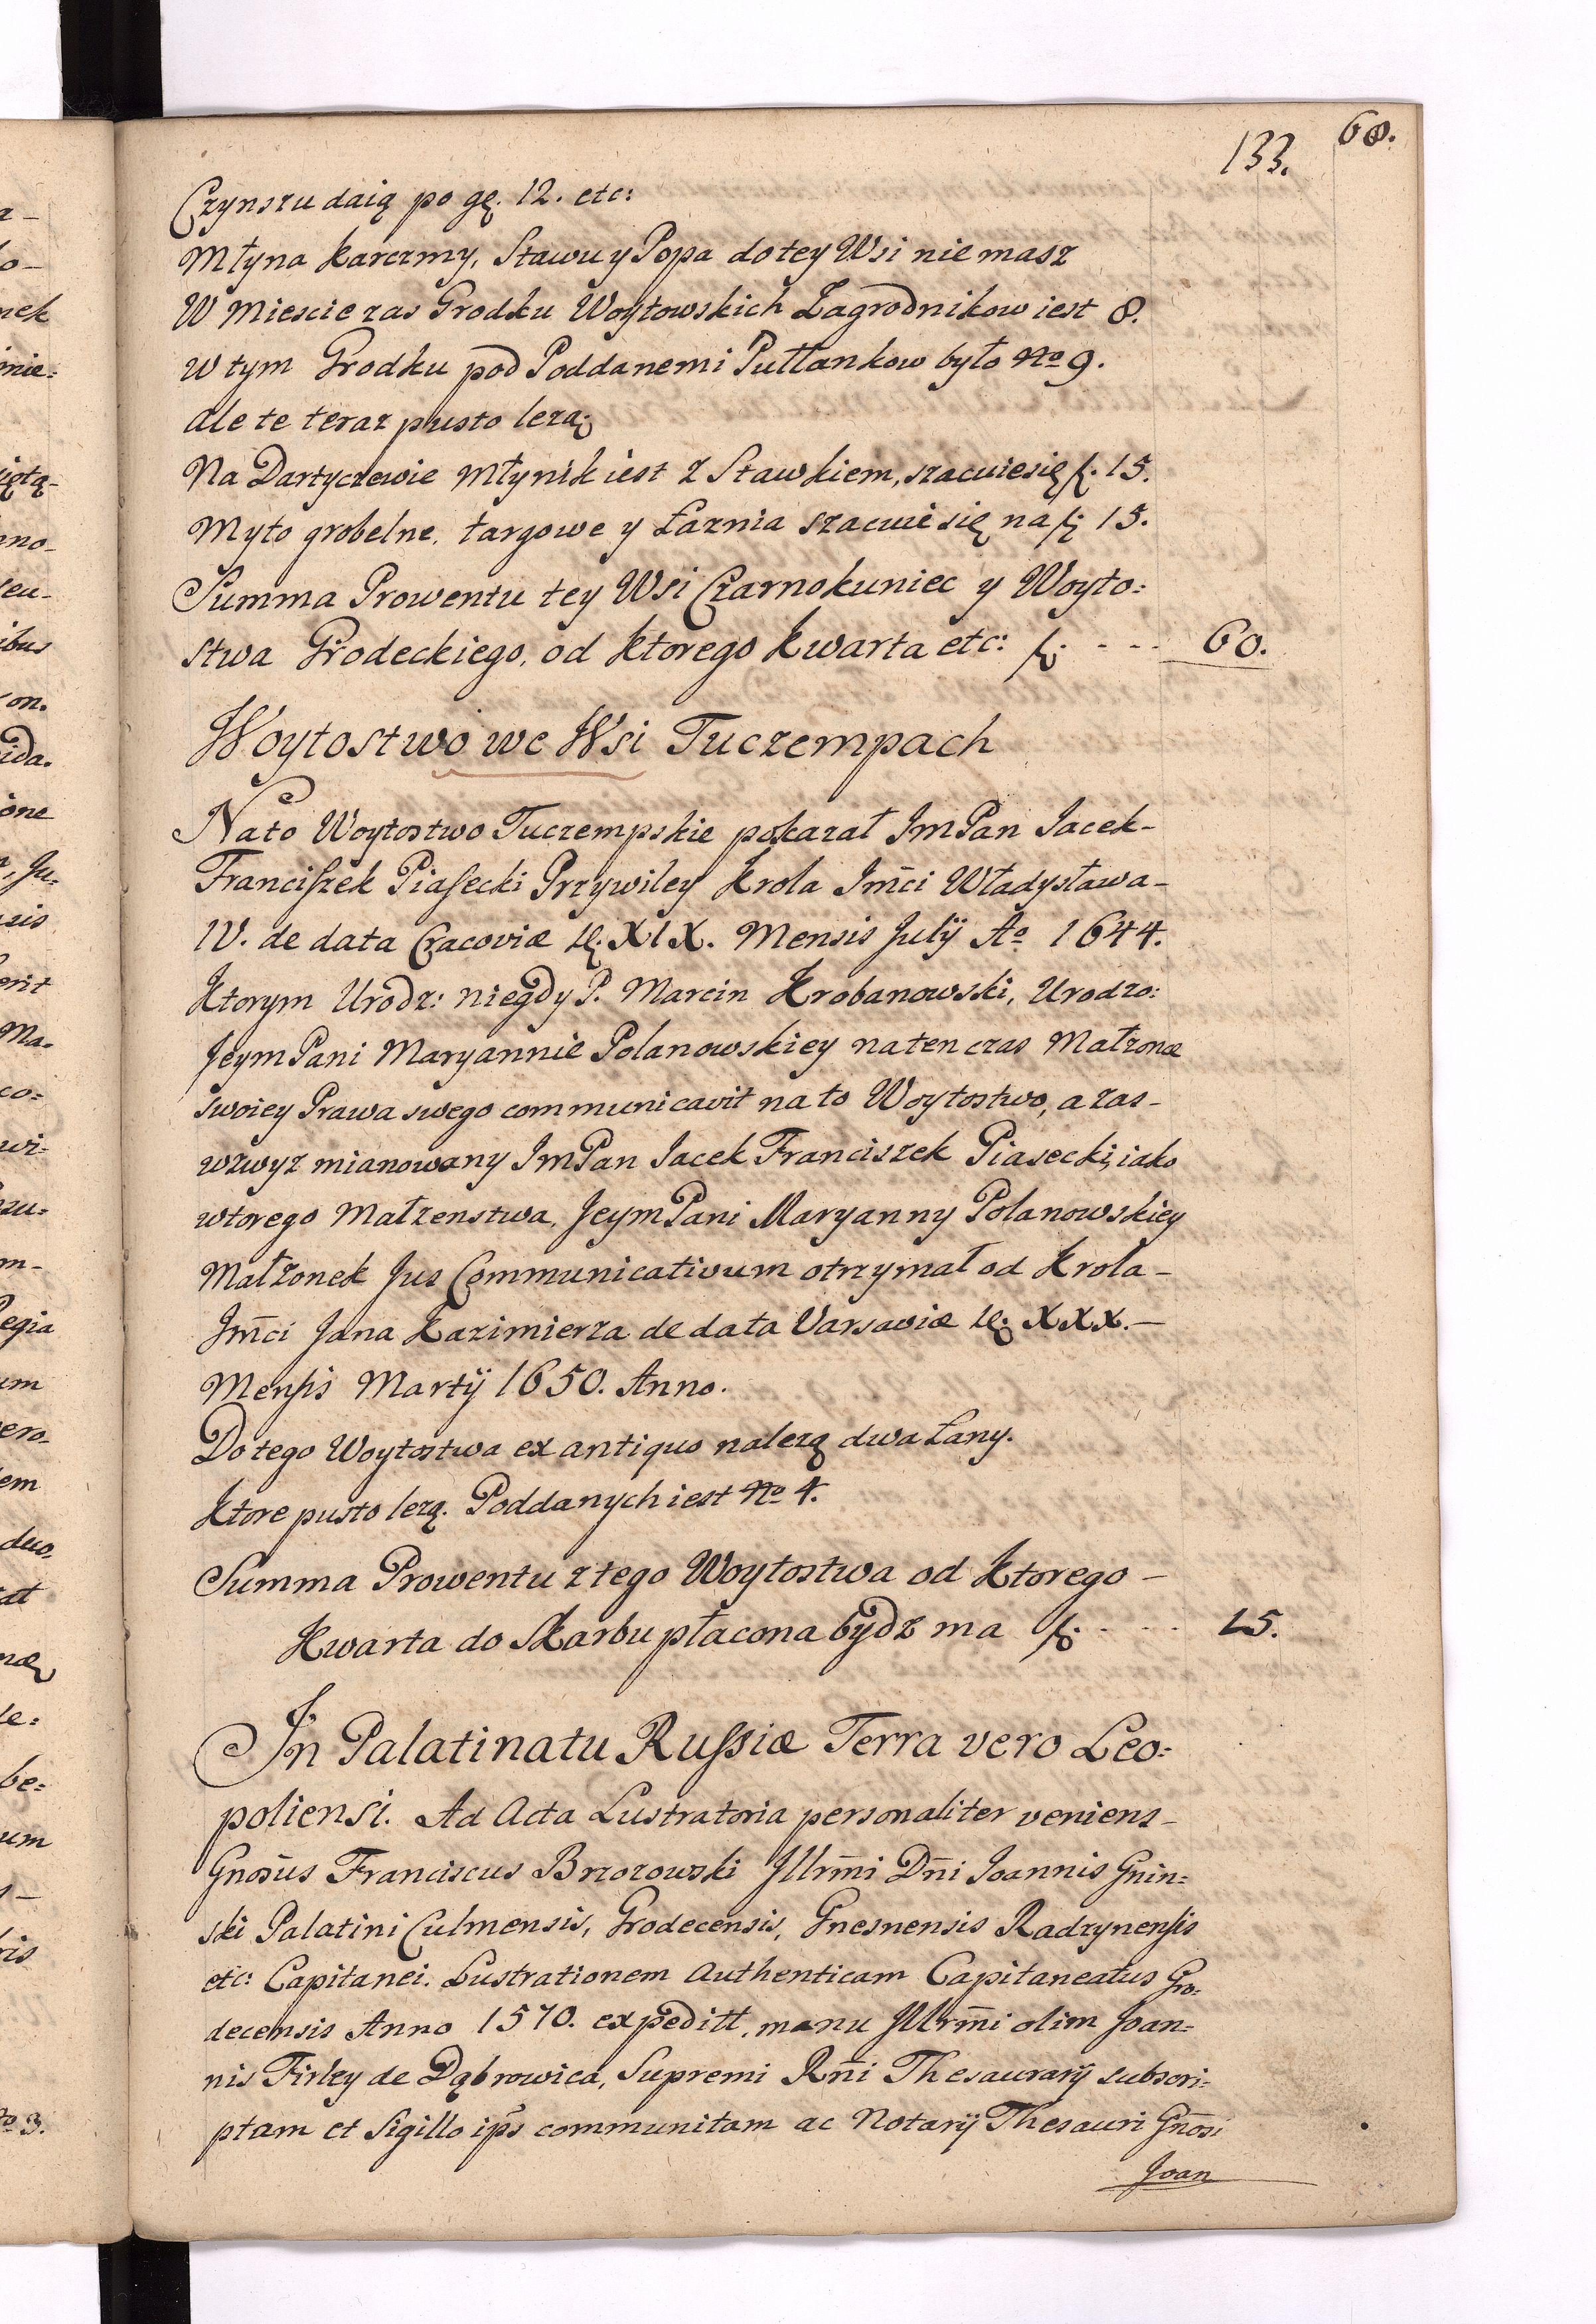 133.
68.
Czynszu daią po gę. 12. etc:
Młyna karczmy, Stawu y Popa do tey Wsi nie masz
W Miescie zas Grodku Woytowskich Zagrodnikow iest 8.
w tym Grodku pod Poddanemi Pułłankow było No 9.
ale te teraz pusto lezą.
Na Dartyczewie Młynik iest z Stawkiem, szacuie się f. 15.
Myto grobelne, targowe y Łaznia szacuie się na f. 15.
Summa Prowentu tey Wsi Czarnokuniec y Woyto:
stwa Grodeckiego, od ktorego kwarta etc: f. - - - 60.
Woytostwo we Wsi Tuczempach
Na to Woytostwo Tuczempskie pokazał ImPan Iacek-
Franciszek Piasecki Przywiley Krola Im̄ci Władysława-
IV. de data Cracoviæ XIX. Mensis Julÿ Ao 1644.
Ktorym Urodz: niegdy P. Marcin Krobanowski, Urodzo:
JeymPani Maryannie Polanowskiey na ten czas Małzonce
swoiey Prawa swego communicavit na to Woytostwo, a zas-
wzwyz mianowany ImPan Iacek Franciszek Piasecki, iako
wtorego Małzenstwa, JeymPani Maryanny Polanowskiey
Małzonek Jus Communicativum otrzymał od Krola-
Jm̄ci Jana Kazimierza de data Varsaviæ XXX.-
Mensis Martÿ 1650. Anno.
Do tego Woytostwa ex antiquo nalezą dwa Łany.
Ktore pusto lezą. Poddanych iest No 4.
Summa Prowentu z tego Woytostwa od Ktorego -
Kwarta do Skarbu płacona bydz ma f. - - - - 15.
In Palatinatu Russiæ Terra vero Leo:
poliensi. Ad Acta Lustratoria personaliter veniens-
Gnosūs Franciscus Brzozowski Jllrm̄i Dn̄i Ioannis Gnin=
ski Palatini Culmensis, Grodecensis, Gnesnensis Radzynensis
etc: Capitanei. Lustrationem Authenticam Capitaneatus Gro:
decensis Anno 1570. expeditt, manu Jllrm̄i olim Joan=
nis Firley de Dąbrowica, Supremi Rn̄i Thesaurarÿ subscri:
ptam et Sigillo ip̄s communitam ac Notarÿ Thesauri Gnōsi
Joan